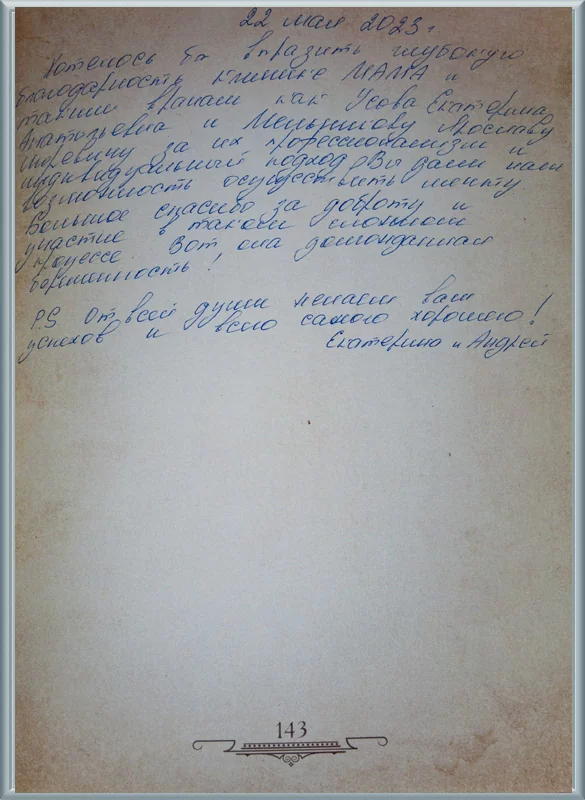 22 мая 2023 г.
Хотелось бы выразить глубокую
благодарность клинике МАМА и
таким врачам как Усова Екатерина
Анатольевна и Меньшикову Ярославу
Игоревичу за их профессионализм и
индивидуальный подход, Вы дали нам
возможность осуществить мечту
Большое спасибо за доброту и
участие в таком сложном
процессе. Вот она долгожданная
беременность!
P.S От всей души желаем вам
успехов и всего самого хорошего!
Екатерина и Андрей
143